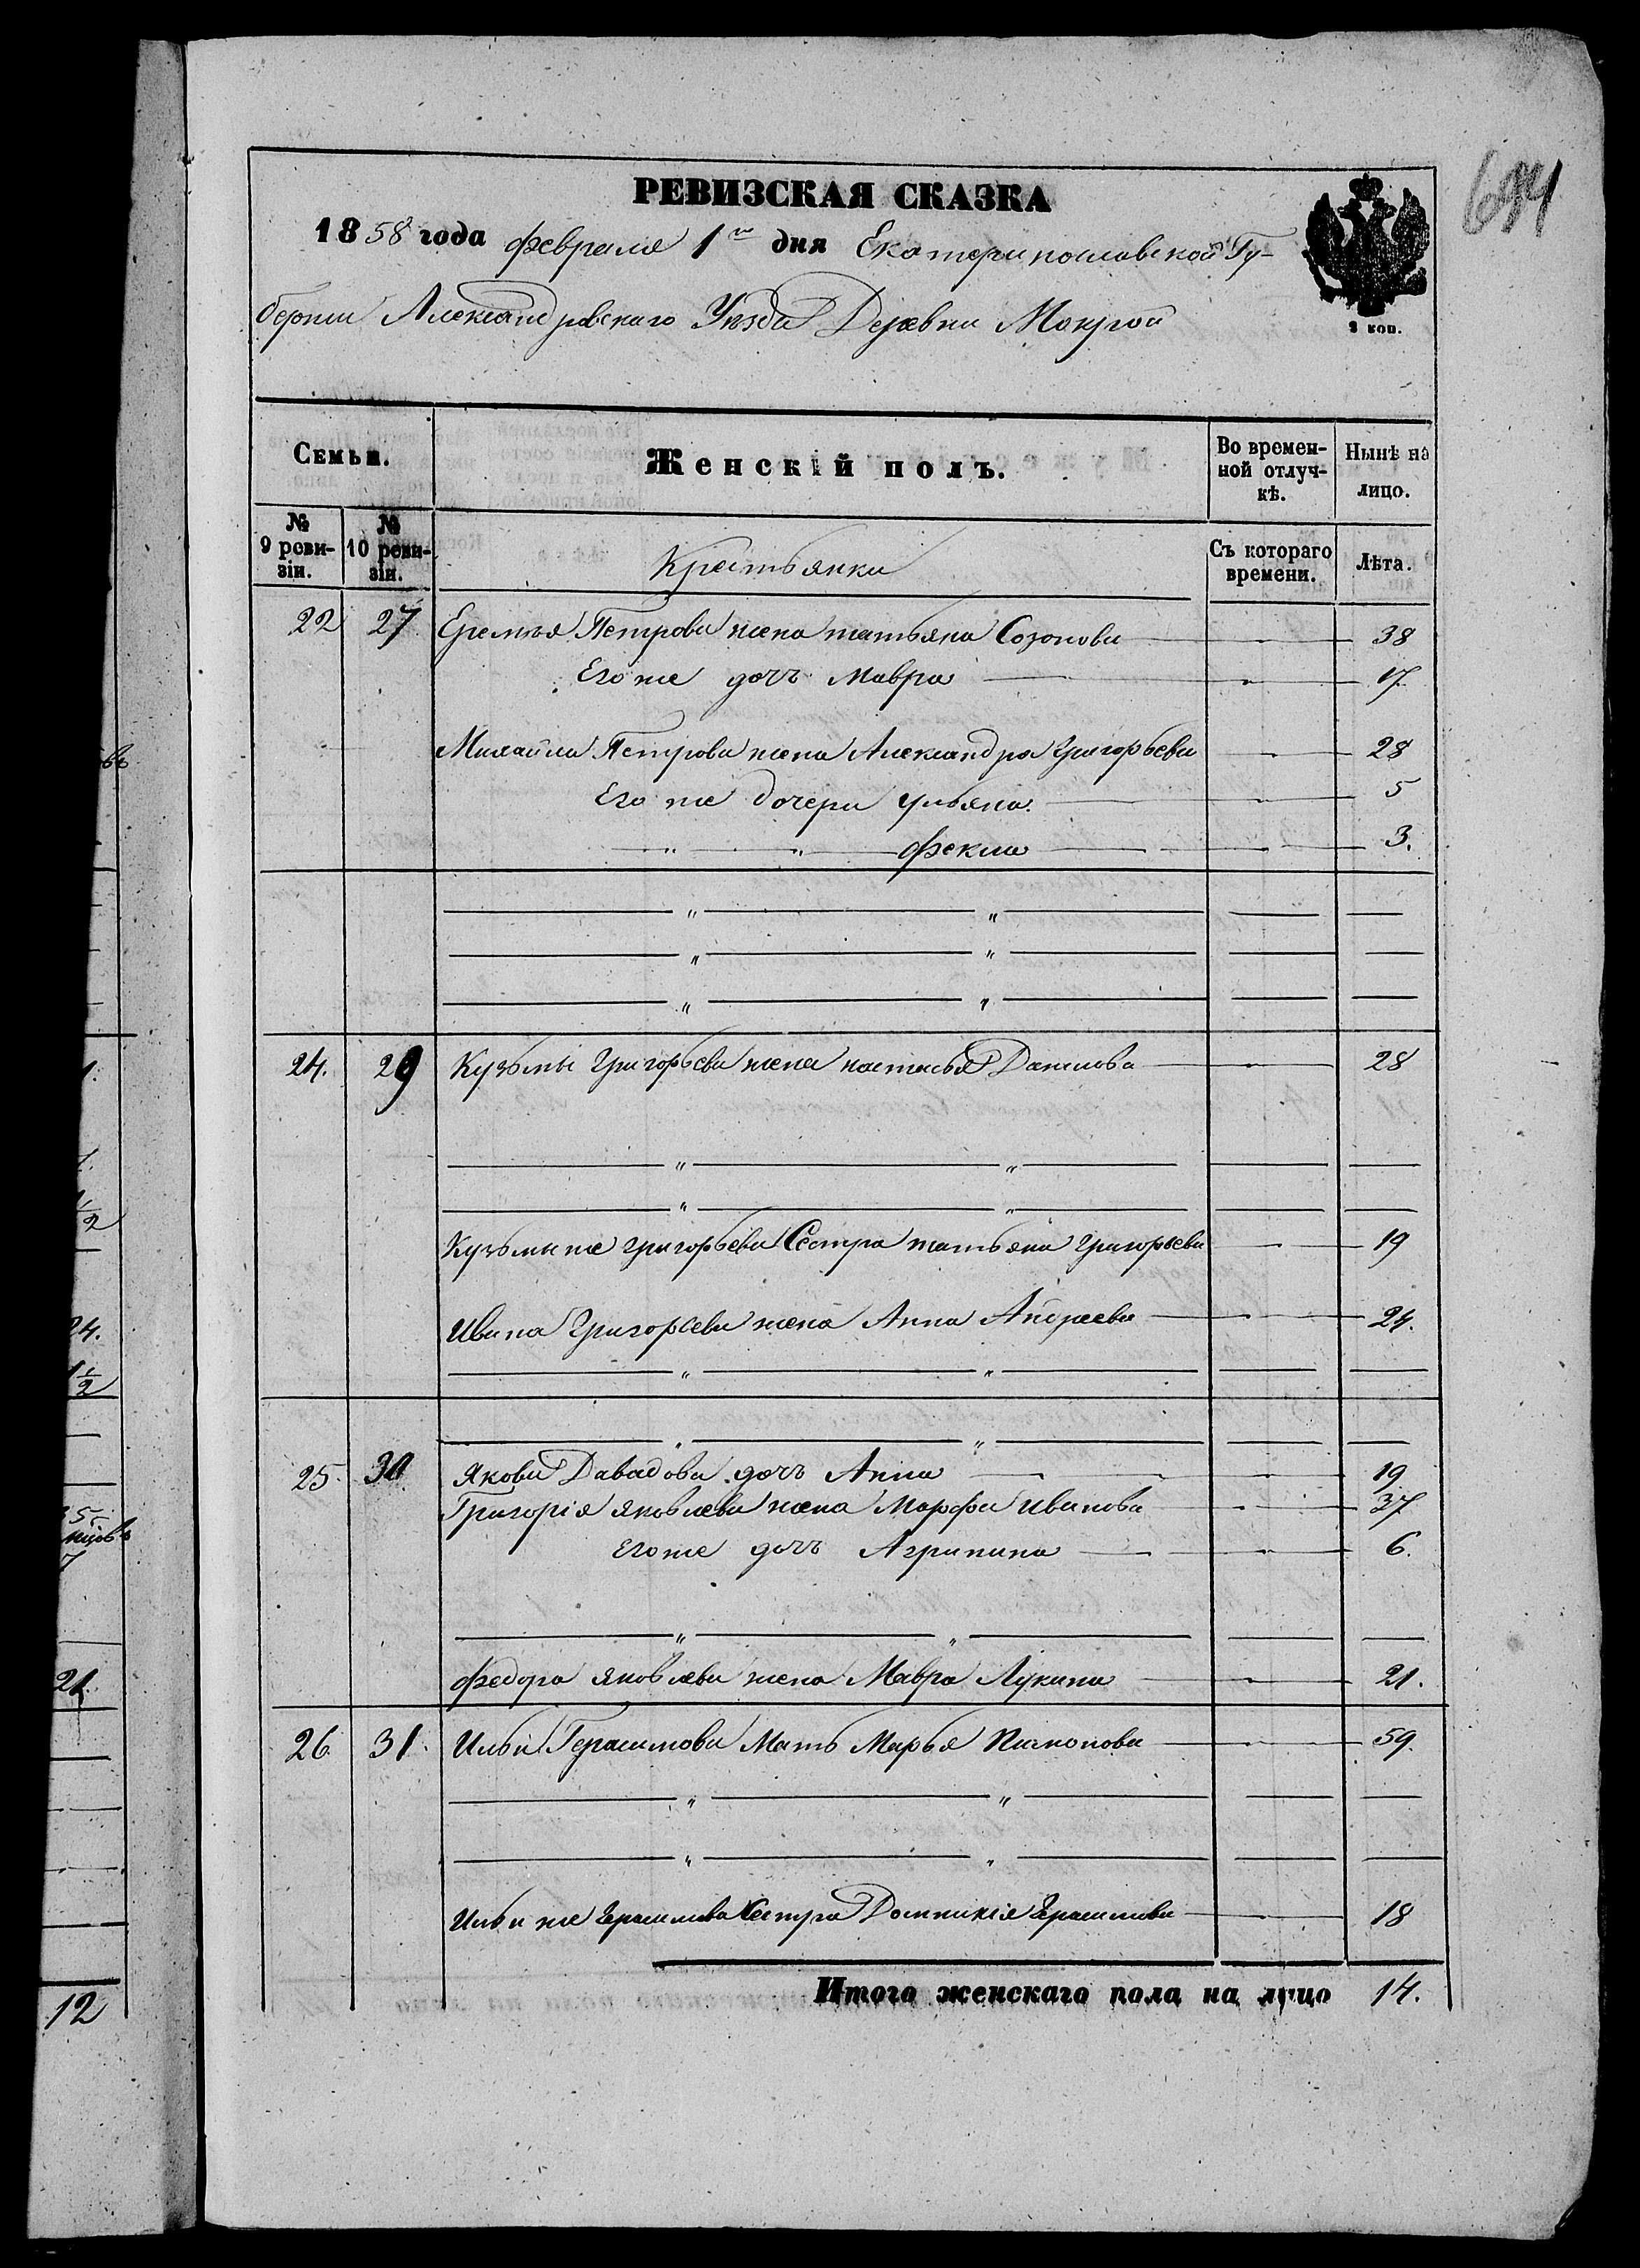 694
РЕВИЗСКАЯ СКАЗКА
1858 года февраля 1го дня Екатеринославской Гу-
берніи Александровскаго Уѣзда Деревни Мокрой
2 коп.
Семьи.
Женскій полъ.
Во времен-
ной отлуч-
кѣ.
Нынѣ на
лицо.
№
9 реви-
зіи.
№
10 реви-
зіи.
Крестьянки
Съ котораго
времени.
Лѣта.
22 27 Еремѣя Петрова жена татьяна Созонова — " — 38
Его же дочъ Мавра — " — 17
Михайла Петрова жена Александра Григорьева — " — 28
Его же дочери ульяна — " — 5
— " — " — фекла — " — 3.
— " — " —
— " — " —
— " — " —
24. 29 Кузьмы Григорьева жена настасья Данилова — " — 28
— " — " —
— " — " —
Кузьмы же григорьева Сестра татьяна григорьева — " — 19
Ивана Григорьева жена Анна Андреева — " — 24.
— " — " —
— " — " —
25. 30 Якова Давидова дочъ Анна — " — 19
Григорія яковлева жена Марфа Иванова — " — 37
Его же дочъ Агрипина — " — 6.
— " — " —
федора яковлева жена Мавра Лукина — " — 21.
26. 31. Ильи Герасимова Мать Марья — " — 59.
— " — " —
— " — " —
Ильи же Герасимова Сестра Домникія Герасимова — " — 18
Итого женскаго пола на лицо 14.
въ
1.
1/2
24.
1 1/2
21.
12